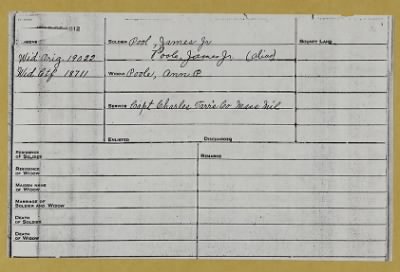 1812
SOLDIER Pool, James Jr
BOUNTY LAND
Poole, James Jr. (alias)
Wid Orig. 19022
Wid Ctf 18711
WIDOW Poole, Ann P.
SERVICE Capt Charles Co Mass Mil
ENLISTED DISCHARGED
RESIDENCE OF SOLDIER
REMARKS
RESIDENCE OF WIDOW
MAIDEN NAME OF WIDOW
MARRIAGE OF SOLDIER AND WIDOW
DEATH OF SOLDIER
DEATH OF WIDOW